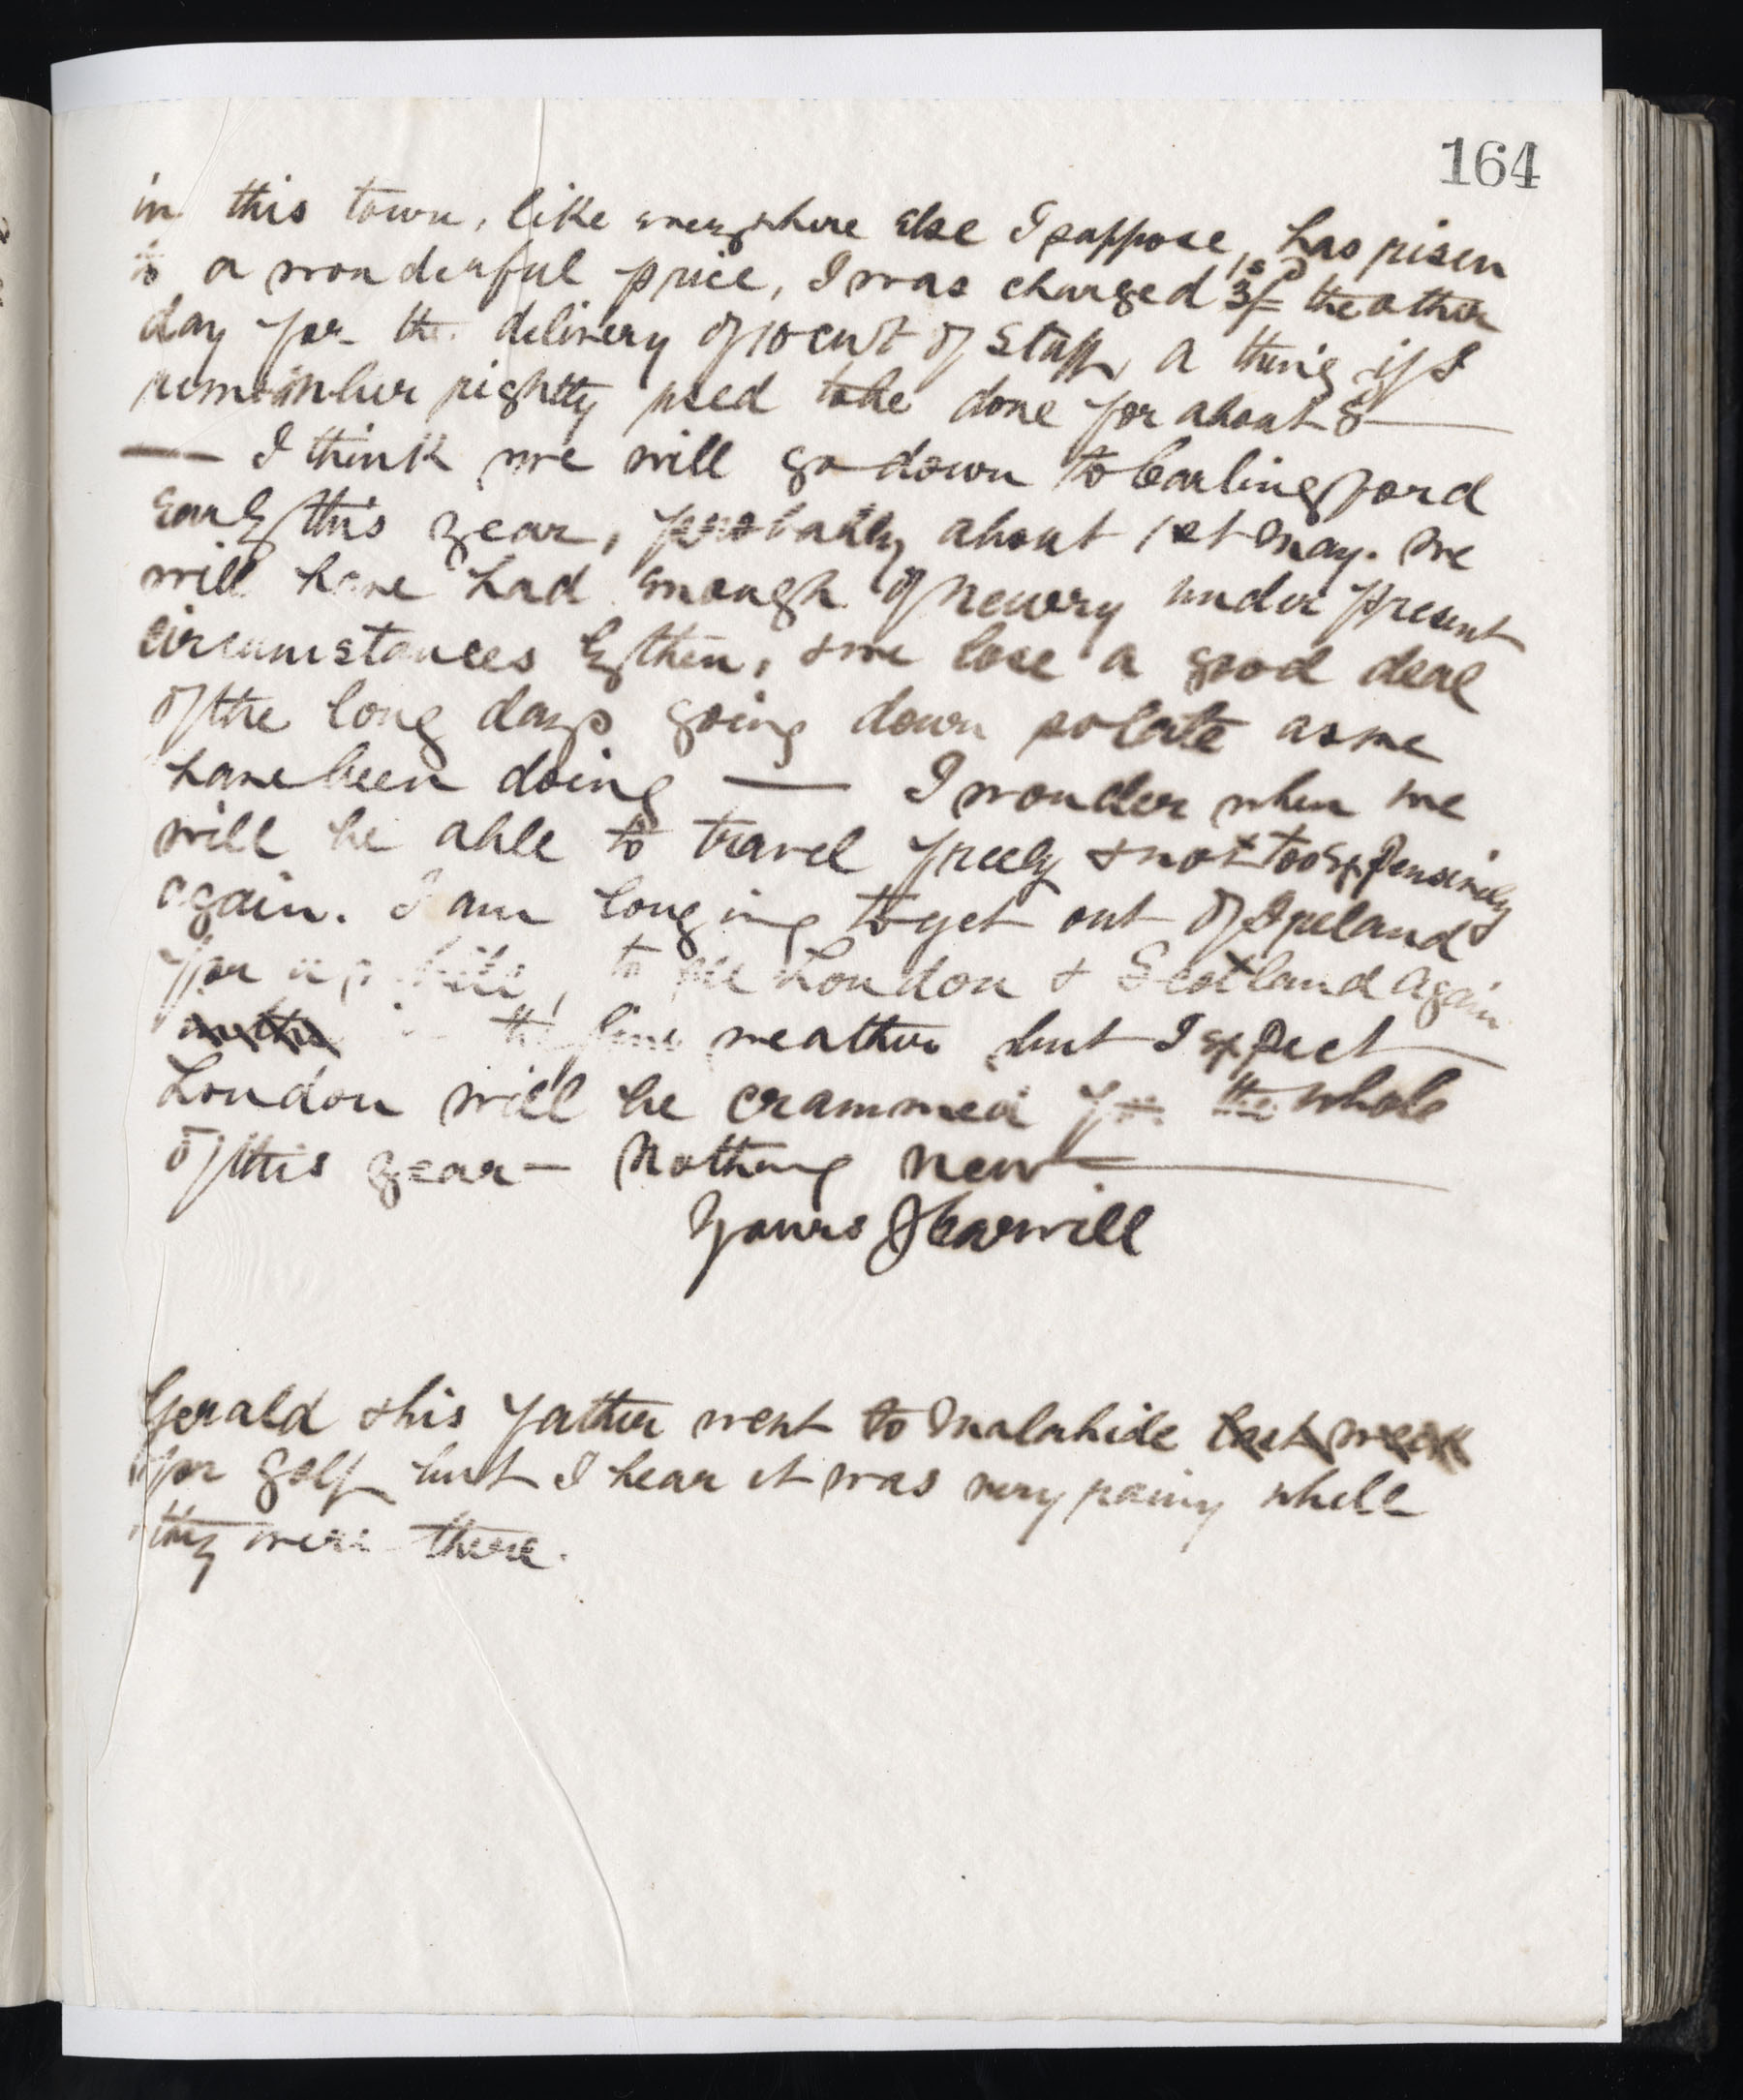 164
in this town, like everywhere else I suppose, has risen
to a wonderful price, I was charged 3/= the other
day for the delivery of 10 cwt of stuff, a thing if I
remember rightly used to be done for about 8
— I think we will go down to Carlingford
early this year, probably about 1st May. We
will have had enough of Newry under present
circumstances by then, & we lose a good deal
of the long days going down so late as we
have been doing — I wonder when we
will be able to travel freely & not too expensively
again. I am longing to get out of Ireland
for a to see London & Scotland again
in the fine weather but I expect
London will be crammed for the whole
of this year — Nothing new —
Yours JCarvill
Gerald & his father went to Malahide last week
for golf but I hear it was very rainy while
they were there.